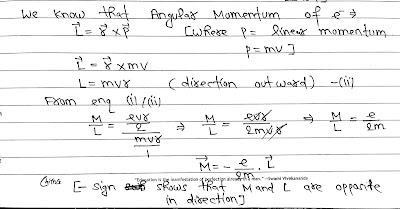 We know that Angular Momentum of e⁻ ⇒
L⃗ = r⃗ × p⃗ [where P = linear momentum
p = mv]
L⃗ = r⃗ × mv
L = mvr (direction outward) -(ii)
From enq (i)/(ii)
M/L = (evr/2)/(mvr/1) ⇒ M/L = evr/2mvr ⇒ M/L = e/2m
M⃗ = - e/2m . L⃗
"Education is the manifestation of perfection already in a man." –Swami Vivekananda
[- sign shows that M and L are opposite
in direction]